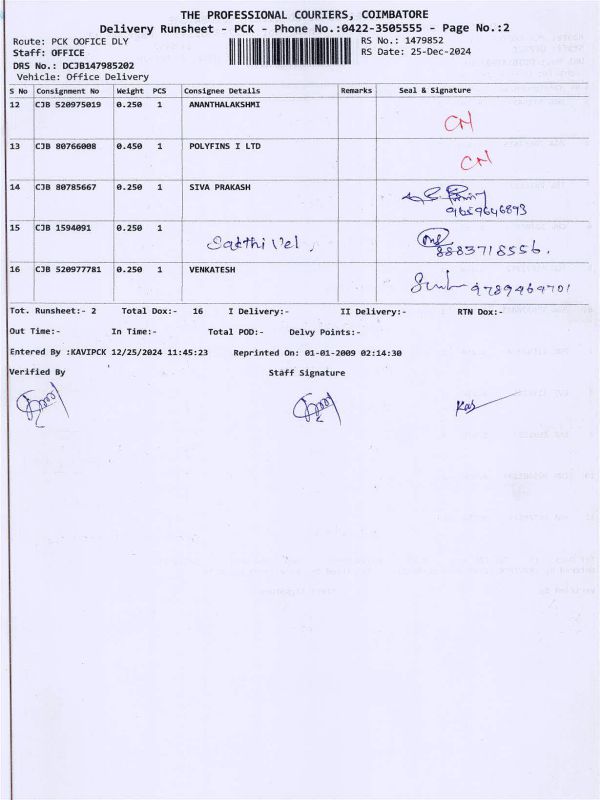 THE PROFESSIONAL COURIERS, COIMBATORE
Delivery Runsheet - PCK - Phone No.:0422-3505555 - Page No.:2
Route: PCK OOFICE DLY RS No.: 1479852
Staff: OFFICE RS Date: 25-Dec-2024
DRS No.: DCJB147985202
Vehicle: Office Delivery
S No Consignment No Weight PCS Consignee Details Remarks Seal & Signature
12 CJB 520975019 0.250 1 ANANTHALAKSHMI
CN
13 CJB 80766008 0.450 1 POLYFINS I LTD
CN
14 CJB 80785667 0.250 1 SIVA PRAKASH
9659646893
15 CJB 1594091 0.250 1
Sakthi Vel . 8883718556.
16 CJB 520977781 0.250 1 VENKATESH
9789469701
Tot. Runsheet:- 2 Total Dox:- 16 I Delivery:- II Delivery:- RTN Dox:-
Out Time:- In Time:- Total POD:- Delvy Points:-
Entered By :KAVIPCK 12/25/2024 11:45:23 Reprinted On: 01-01-2009 02:14:30
Verified By Staff Signature